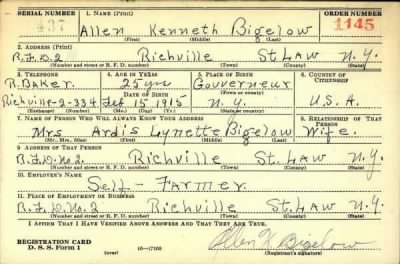 SERIAL NUMBER 1. NAME (Print) ORDER NUMBER
437 Allen Kenneth Bigelow 1145
(First) (Middle) (Last)
2. ADDRESS (Print)
R.F.D.2 Richville St. Law N.Y.
(Number and street or R. F. D. number) (Town) (County) (State)
3. TELEPHONE 4. AGE IN YEARS 5. PLACE OF BIRTH 6. COUNTRY OF CITIZENSHIP
R. Baker 25 yrs Gouverneur
DATE OF BIRTH (Town or county)
Richville-2-334 Feb 15 1915 N.Y. U.S.A.
(Exchange) (Number) (Mo.) (Day) (Yr.) (State or country)
7. NAME OF PERSON WHO WILL ALWAYS KNOW YOUR ADDRESS 8. RELATIONSHIP OF THAT PERSON
Mrs Ardis Lynette Bigelow Wife.
(Mr., Mrs., Miss) (First) (Middle) (Last)
9. ADDRESS OF THAT PERSON
R.F.D. No. 2. Richville St. Law N.Y.
(Number and street or R. F. D. number) (Town) (County) (State)
10. EMPLOYER'S NAME
Self - Farmer.
11. PLACE OF EMPLOYMENT OR BUSINESS
R.F.D. No. 2 Richville St. Law N.Y.
(Number and street or R. F. D. number) (Town) (County) (State)
I AFFIRM THAT I HAVE VERIFIED ABOVE ANSWERS AND THAT THEY ARE TRUE.
REGISTRATION CARD
D. S. S. Form 1 (over) 16-17105 Allen K Bigelow
(Registrant's signature)